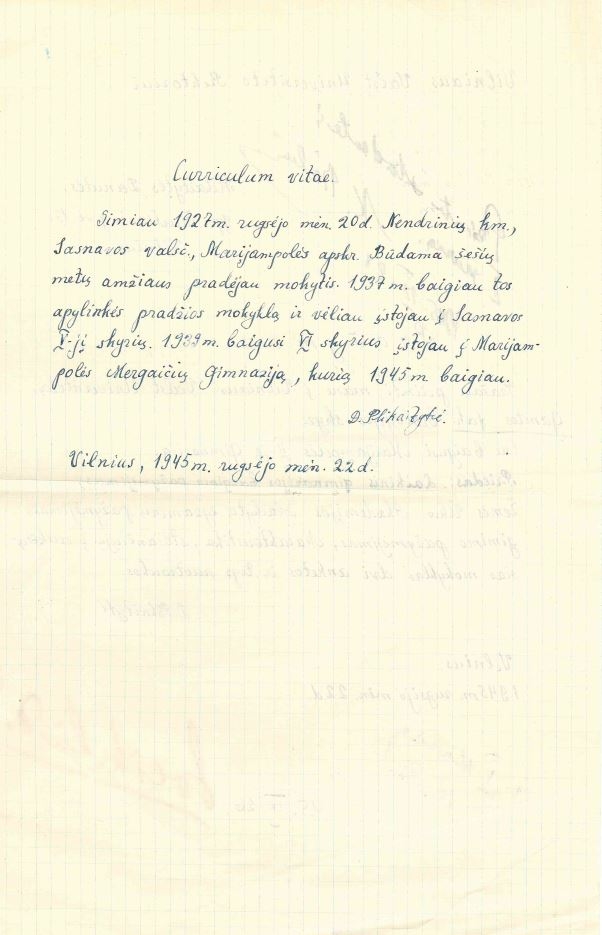 Curriculum vitae.
Gimiau 1927 m. rugsėjo mėn. 20 d. Nendrinių km.,
Sasnavos valsč., Marijampolės apskr. Būdama šešių
metų amžiaus pradėjau mokytis. 1937 m. baigiau tos
apylinkės pradžios mokyklą ir vėliau įstojau į Sasnavos
V-jį skyrių. 1939 m. baigusi VI skyrius įstojau į Marijam-
polės Mergaičių Gimnaziją, kurią 1945 m. baigiau.
D. Plikaitytė.
Vilnius, 1945 m. rugsėjo mėn. 22 d.